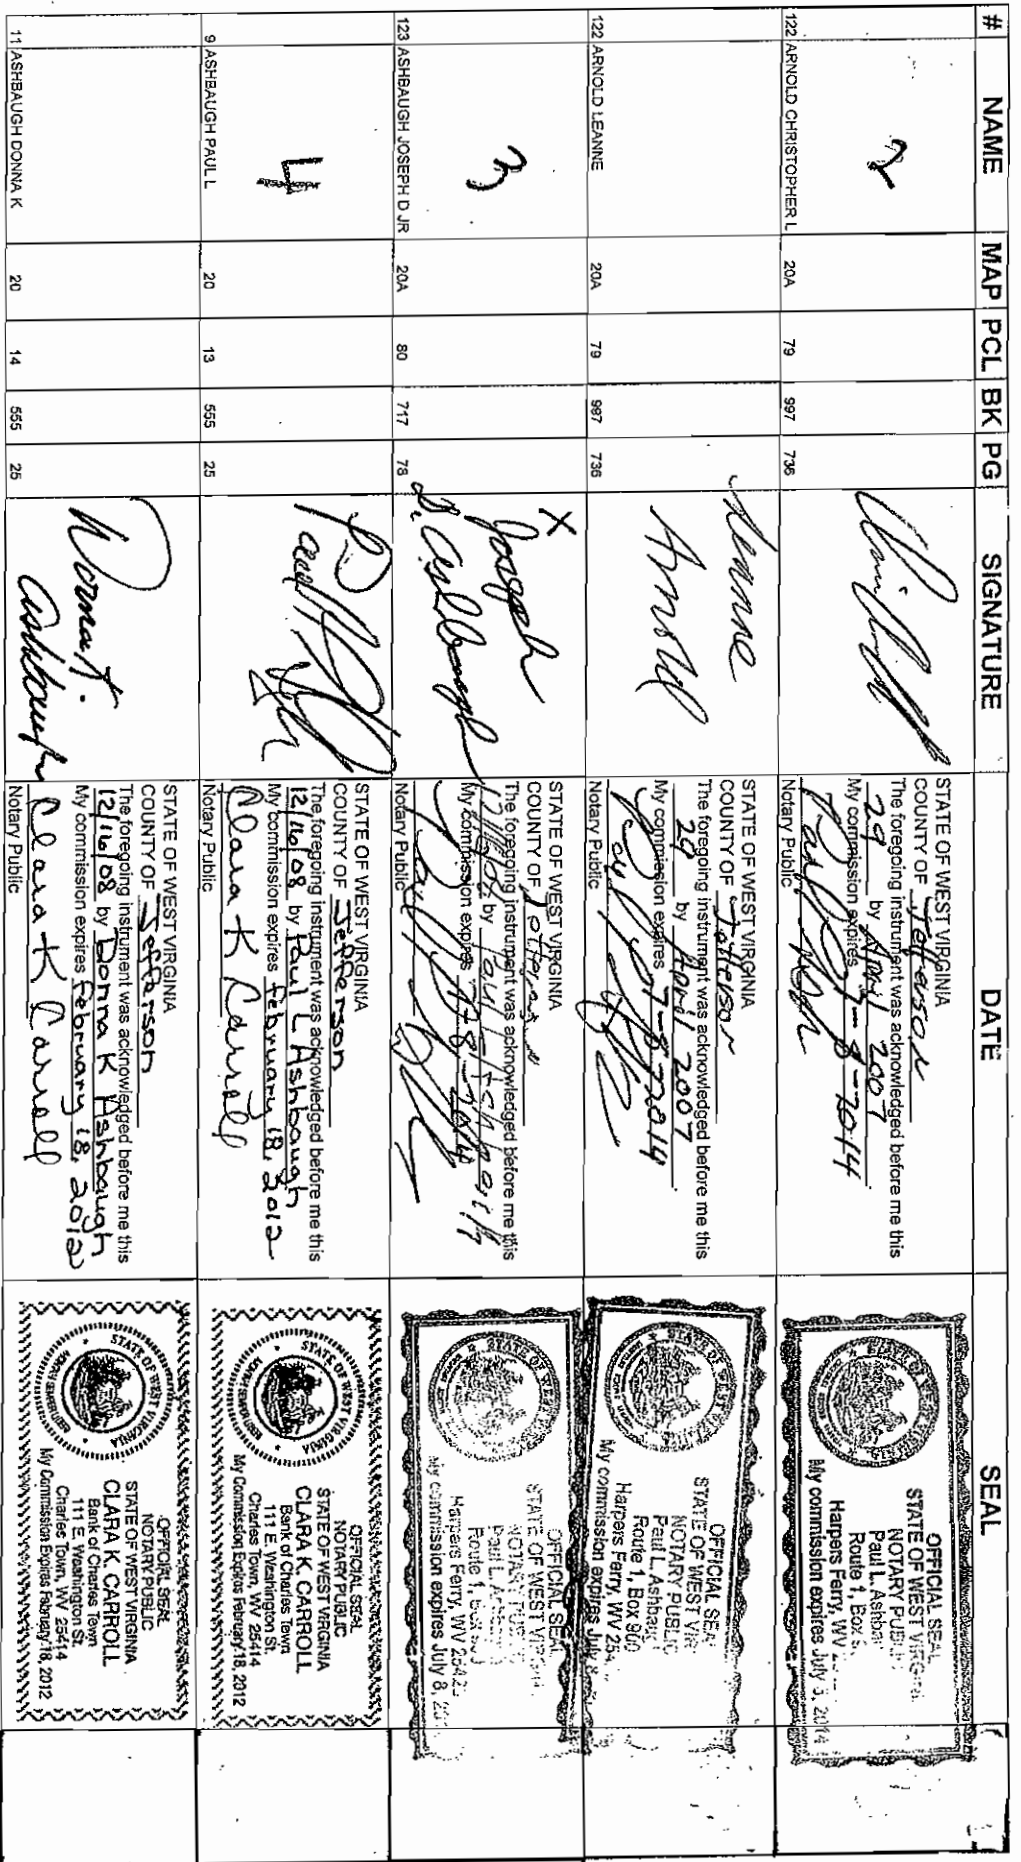 # NAME MAP PCL BK PG SIGNATURE DATE SEAL
2
122 ARNOLD CHRISTOPHER L 20A 79 997 736
STATE OF WEST VIRGINIA
COUNTY OF Jefferson
The foregoing instrument was acknowledged before me this
29 by April 2007
My commission expires 7-8-2014
Notary Public
OFFICIAL SEAL
STATE OF WEST VIRGINIA
NOTARY PUBLIC
Paul L. Ashbau
Route 1, Box
Harpers Ferry, WV
My commission expires July 2014
122 ARNOLD LEANNE 20A 79 997 736
Leanne
Arnold
STATE OF WEST VIRGINIA
COUNTY OF Jefferson
The foregoing instrument was acknowledged before me this
29 by April 2007
My commission expires 7-8-2014
Notary Public
OFFICIAL SEAL
STATE OF WEST VIR
NOTARY PUBLIC
Paul L. Ashbau
Route 1, Box 900
Harpers Ferry, WV 254
My commission expires July
3
123 ASHBAUGH JOSEPH D JR 20A 80 717 78
X Joseph
D. Ashbaugh
STATE OF WEST VIRGINIA
COUNTY OF Jefferson
The foregoing instrument was acknowledged before me this
by
My commission expires
Notary Public
OFFICIAL SEAL
STATE OF WEST VIRGINIA
NOTARY PUBLIC
Paul L.
Route 1,
Harpers Ferry, WV 25425
My commission expires July 8,
4
9 ASHBAUGH PAUL L 20 13 555 25
Paul
STATE OF WEST VIRGINIA
COUNTY OF Jefferson
The foregoing instrument was acknowledged before me this
12/16/08 by Paul L Ashbaugh
My commission expires february 18, 2012
Clara K Carroll
Notary Public
OFFICIAL SEAL
NOTARY PUBLIC
STATE OF WEST VIRGINIA
CLARA K. CARROLL
Bank of Charles Town
111 E. Washington St.
Charles Town, WV 25414
My Commission Expires February 18, 2012
STATE OF WEST VIRGINIA
11 ASHBAUGH DONNA K 20 14 555 25
Donna K.
Ashbaugh
STATE OF WEST VIRGINIA
COUNTY OF Jefferson
The foregoing instrument was acknowledged before me this
12/16/08 by Donna K Ashbaugh
My commission expires february 18, 2012
Clara K Carroll
Notary Public
OFFICIAL SEAL
NOTARY PUBLIC
STATE OF WEST VIRGINIA
CLARA K. CARROLL
Bank of Charles Town
111 E. Washington St.
Charles Town, WV 25414
My Commission Expires February 18, 2012
STATE OF WEST VIRGINIA